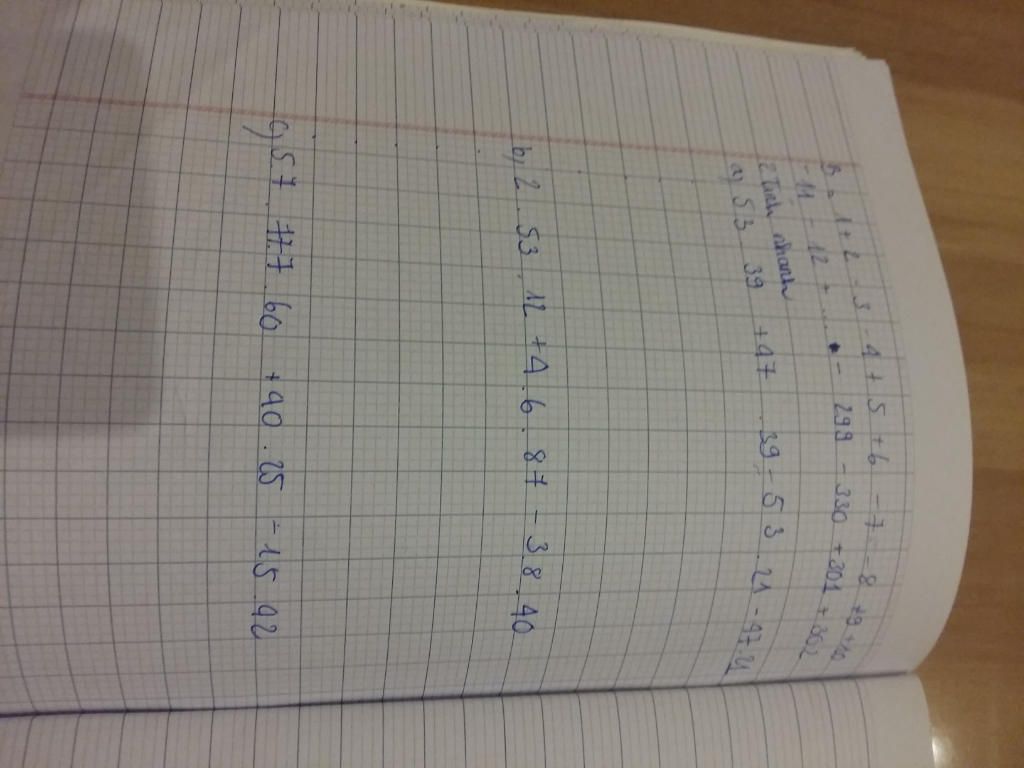 B = 1 + 2 - 3 - 4 + 5 + 6 - 7 - 8 + 9 + 10
- 11 - 12 + ..... - 299 - 330 + 301 + 302
2 Tính nhanh
a) 53 . 39 + 47 . 39 - 53 . 21 - 47 . 21
b) 2 . 53 . 12 + 4 . 6 . 87 - 38 . 40
c) 57 . 77 . 60 + 40 . 25 - 15 . 42